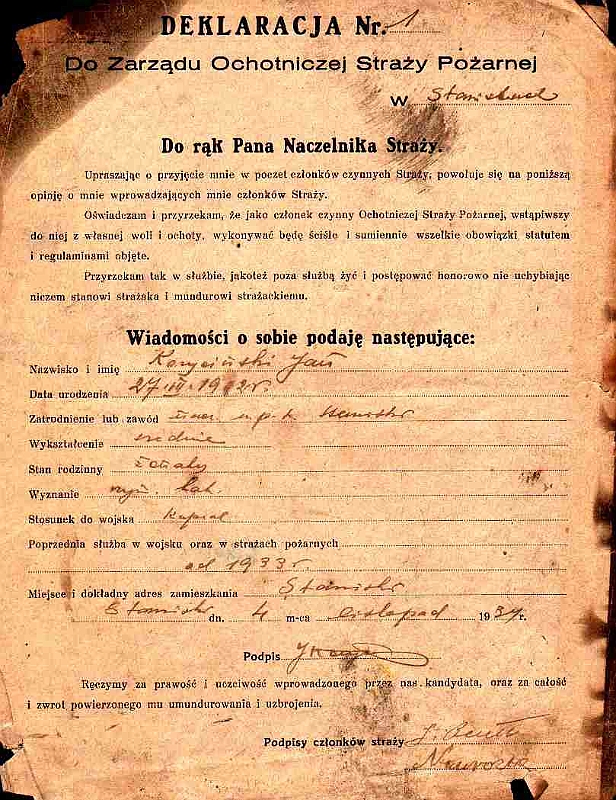 DEKLARACJA Nr. 1
Do Zarządu Ochotniczej Straży Pożarnej
w
Do rąk Pana Naczelnika Straży.
Upraszając o przyjęcie mnie w poczet członków czynnych Straży, powołuję się na poniższą
opinję o mnie wprowadzających mnie członków Straży.
Oświadczam i przyrzekam, że jako członek czynny Ochotniczej Straży Pożarnej, wstąpiwszy
do niej z własnej woli i ochoty, wykonywać będę ściśle i sumiennie wszelkie obowiązki statutem
i regulaminami objęte.
Przyrzekam tak w służbie, jakoteż poza służbą żyć i postępować honorowo nie uchybiając
niczem stanowi strażaka i mundurowi strażackiemu.
Wiadomości o sobie podaję następujące:
Nazwisko i imię Jan
Data urodzenia 27 III 1912 r.
Zatrudnienie lub zawód
Wykształcenie średnie
Stan rodzinny żonaty
Wyznanie rzym. kat.
Stosunek do wojska kapral
Poprzednia służba w wojsku oraz w strażach pożarnych
od 1933 r.
Miejsce i dokładny adres zamieszkania
dn. 4 m-ca listopad 1934 r.
Podpis
Ręczymy za prawość i uczciwość wprowadzonego przez nas kandydata, oraz za całość
i zwrot powierzonego mu umundurowania i uzbrojenia.
Podpisy członków straży